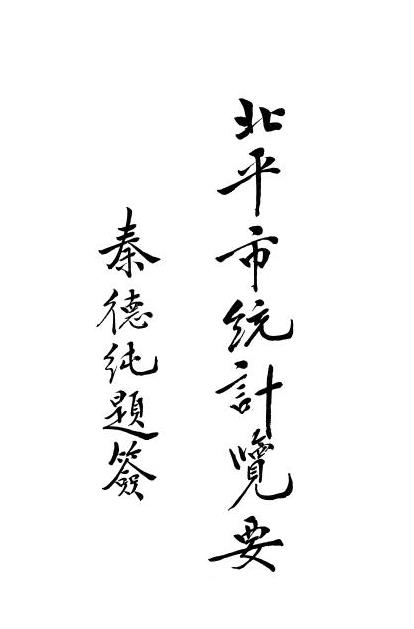 北平市統計覽要
秦德純題簽